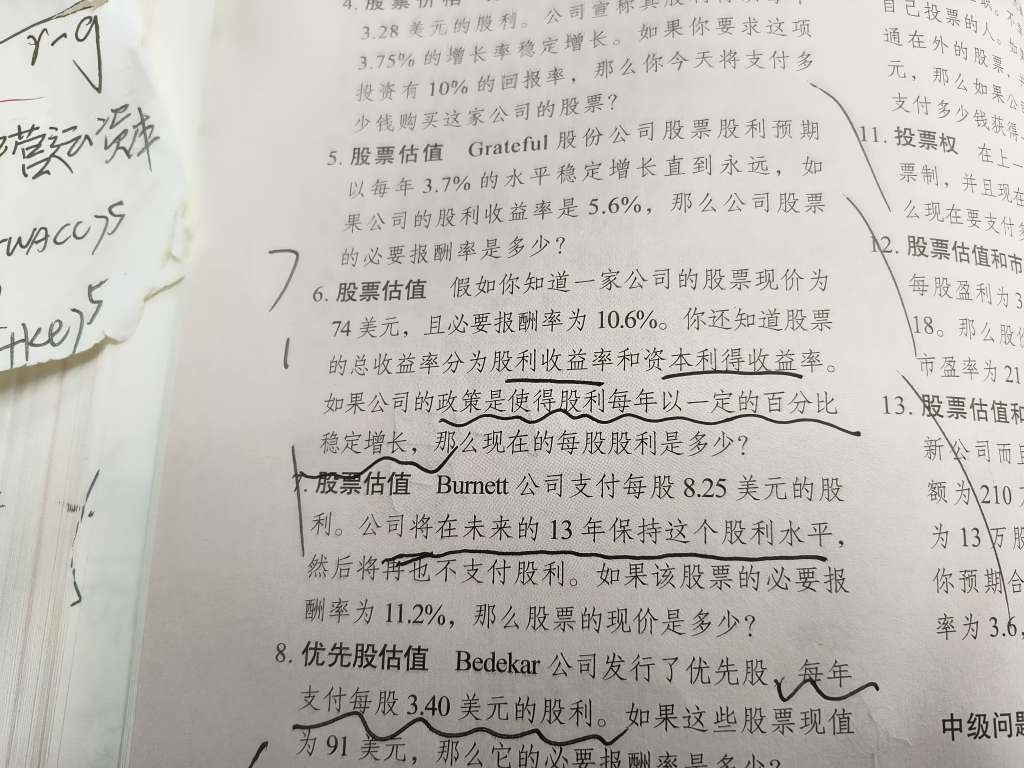 r-g
营运资本
WACC)5
4. 股票价格
3.28 美元的股利。公司宣称其股利将以每年
3.75% 的增长率稳定增长。如果你要求这项
投资有 10% 的回报率，那么你今天将支付多
少钱购买这家公司的股票？
5. 股票估值 Grateful 股份公司股票股利预期
以每年 3.7% 的水平稳定增长直到永远，如
果公司的股利收益率是 5.6%，那么公司股票
的必要报酬率是多少？
6. 股票估值 假如你知道一家公司的股票现价为
74 美元，且必要报酬率为 10.6%。你还知道股票
的总收益率分为股利收益率和资本利得收益率。
如果公司的政策是使得股利每年以一定的百分比
稳定增长，那么现在的每股股利是多少？
7. 股票估值 Burnett 公司支付每股 8.25 美元的股
利。公司将在未来的 13 年保持这个股利水平，
然后将再也不支付股利。如果该股票的必要报
酬率为 11.2%，那么股票的现价是多少？
8. 优先股估值 Bedekar 公司发行了优先股，每年
支付每股 3.40 美元的股利。如果这些股票现值
为 91 美元，那么它的必要报酬率是多少？
自己投票的人。
通在外的股票，
元，那么如果公
支付多少钱获得
11. 投票权 在上一
票制，并且现在
么现在要支付多
12. 股票估值和市
每股盈利为 3
18。那么股价
市盈率为 21
13. 股票估值和
新公司而且
额为 210
为 13 万股
你预期合
率为 3.6
中级问题